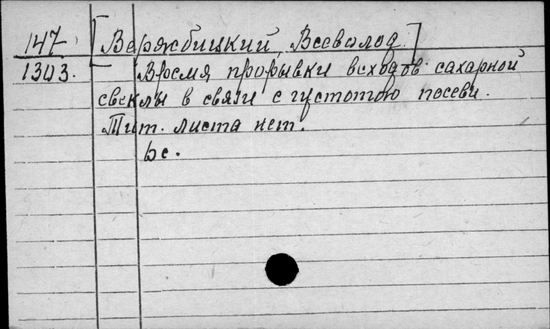 147 [Вержбицкий, Всеволод.]
1303. Время прорывки всходов сахарной
свеклы в связи с густотою посева.
Тит. листа нет.